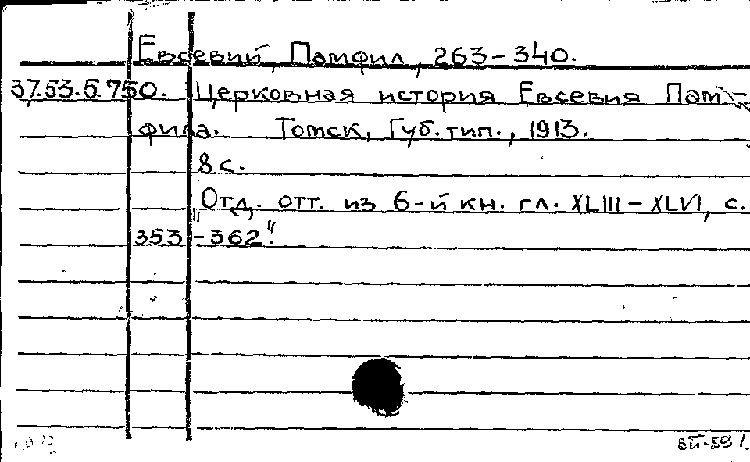 Евсевий, Памфил, 263-340.
37.53.5.750. Церковная история Евсевия Пам-
фила. Томск, Губ. тип., 1913.
8 с.
„Отд. отт. из 6-й кн. гл. XLIII-XLVI, с.
353-362".